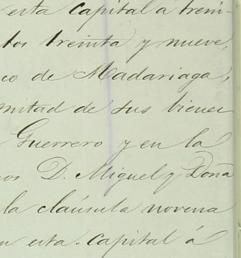 esta capital a trein-
tos treinta y nueve,
co de Madariaga,
mitad de sus bienes
Guerrero y en la
os D. Miguel y Doña
la cláusula novena
en esta capital á